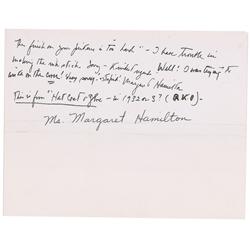 The finish on your picture is too hard" - I have trouble in
making the ink stick. Sorry - Kindest regards Well! I was trying to
write on the cover! Very sorry. Stupid Margaret Hamilton
This is from "Hat Coat & Glove - in 1932 or 3? (RKO) -
Ms. Margaret Hamilton